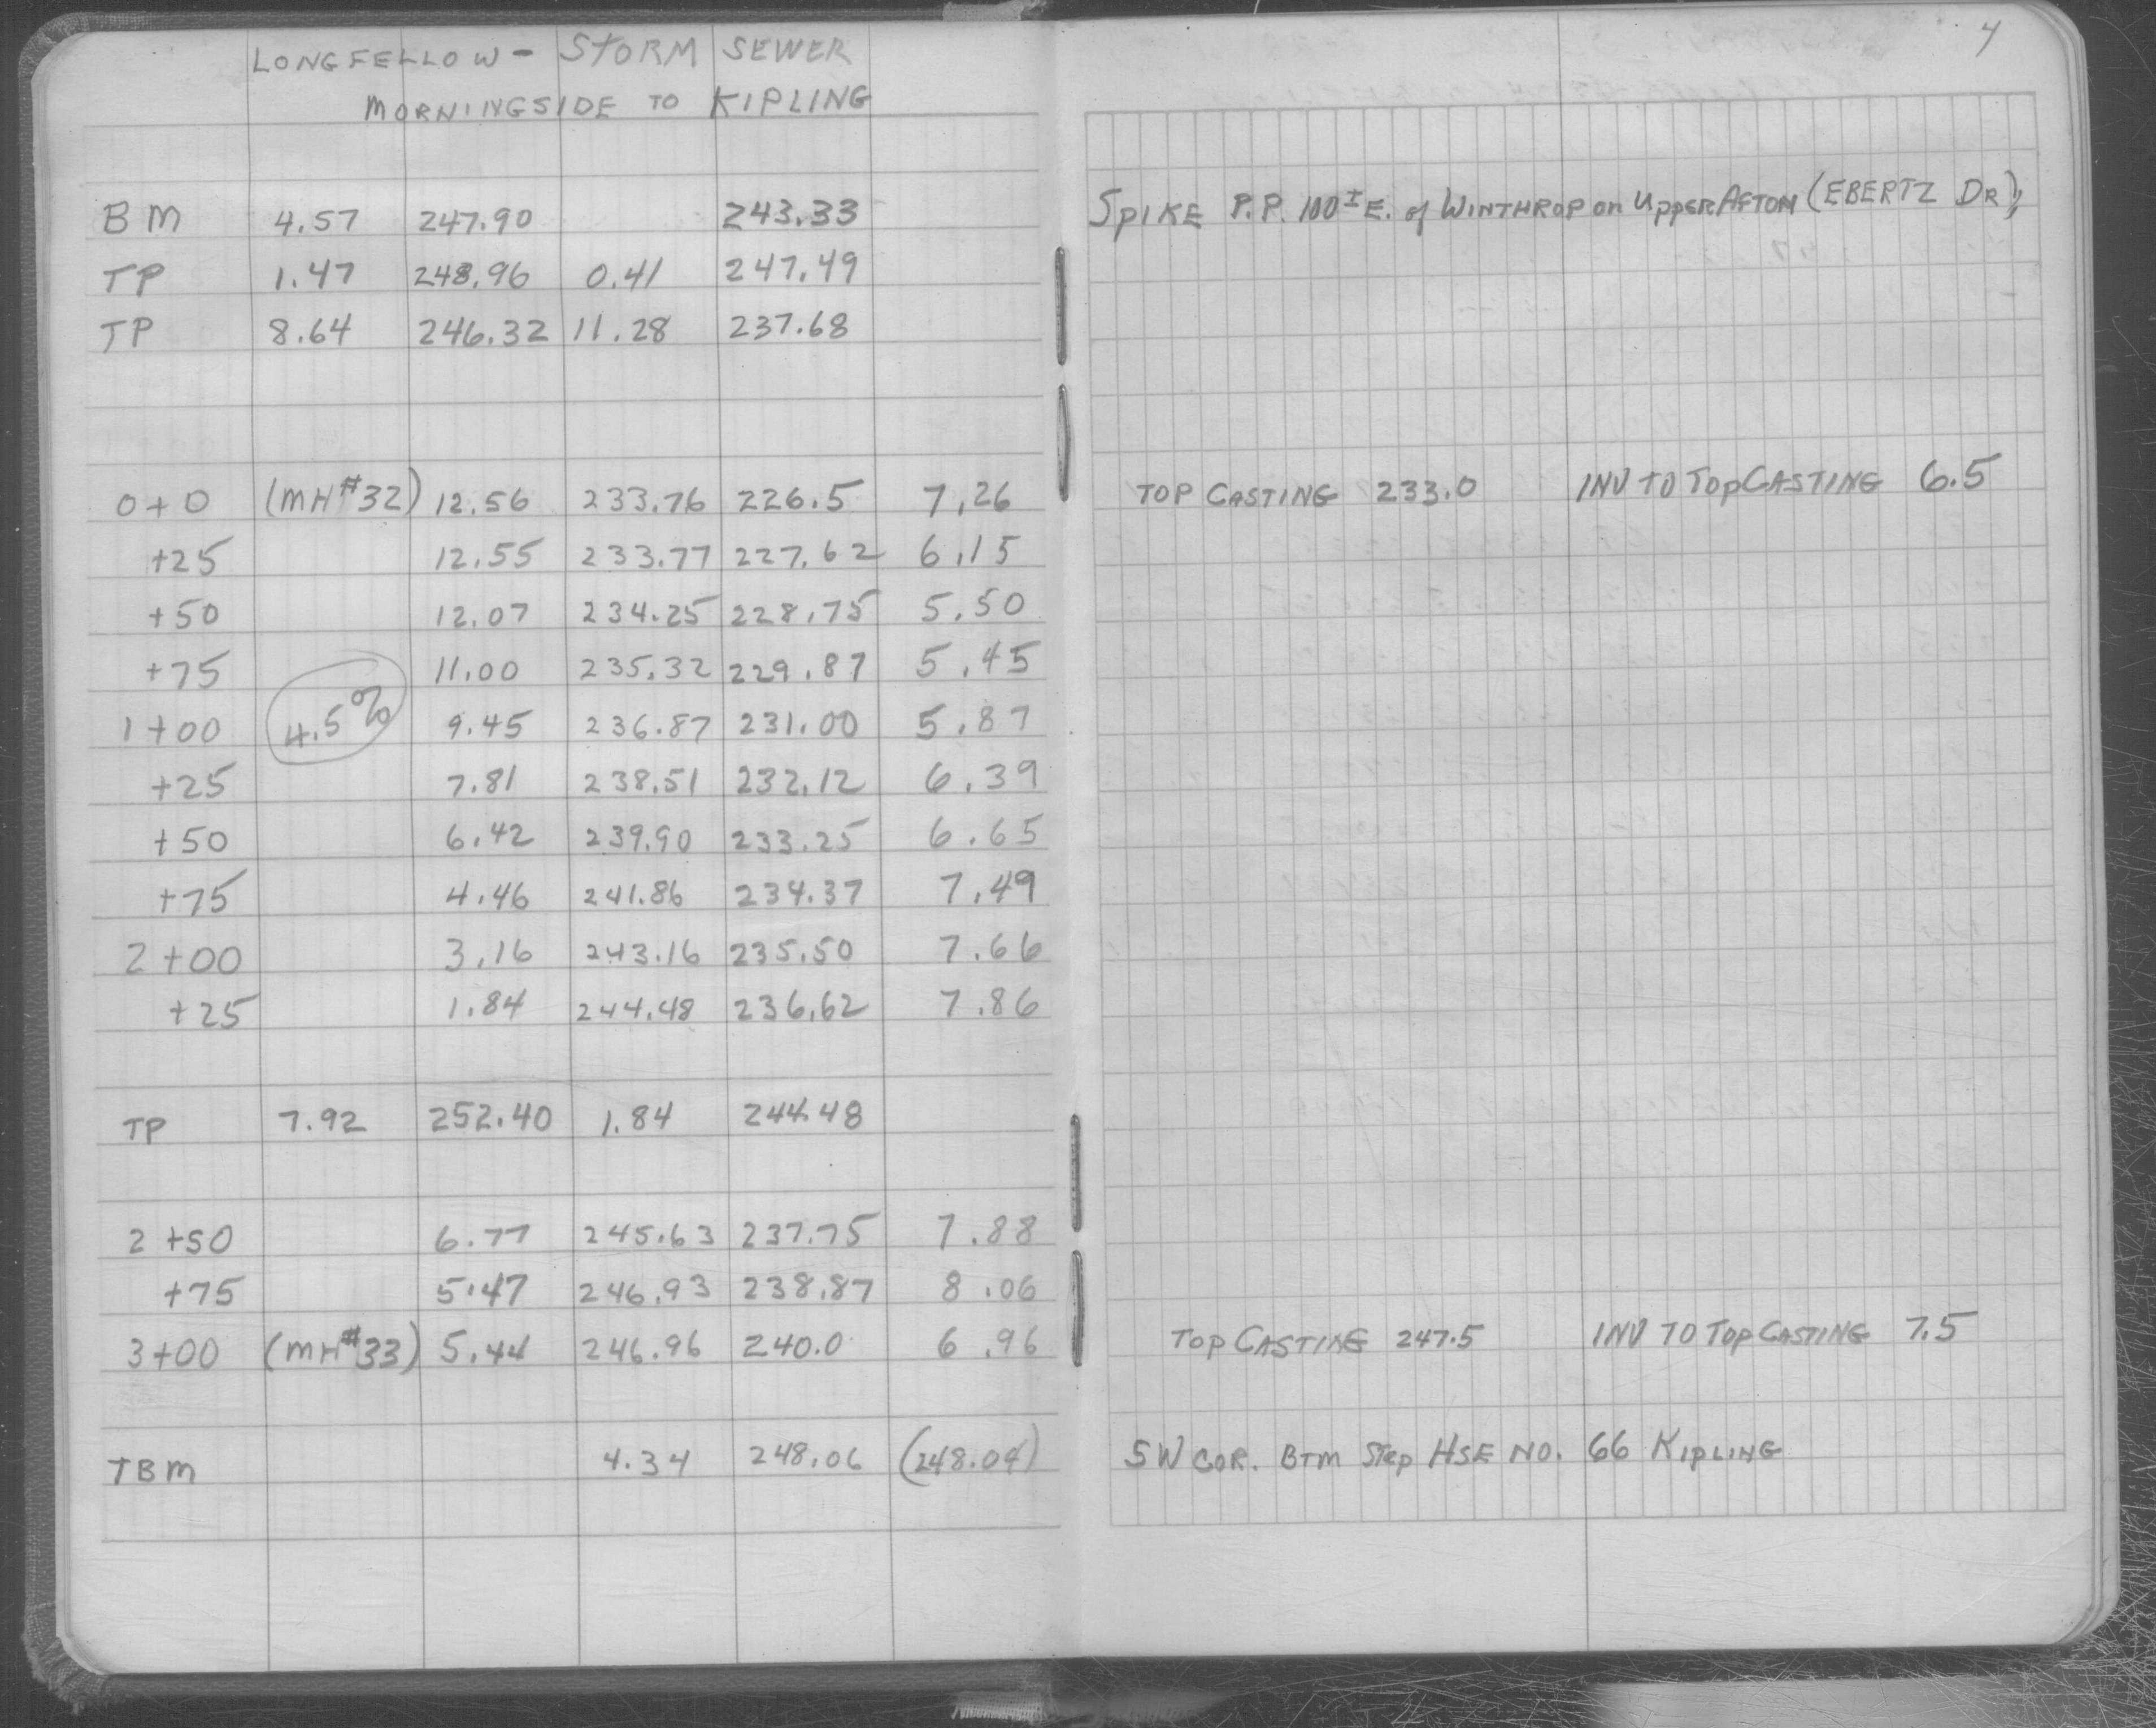 4
LONGFELLOW - STORM SEWER
MORNINGSIDE TO KIPLING
BM 4.57 247.90 243.33 SPIKE P.P. 100± E. of WINTHROP on UPPER AFTON (EBERTZ DR)
TP 1.47 248.96 0.41 247.49
TP 8.64 246.32 11.28 237.68
0+0 (MH#32) 12.56 233.76 226.5 7.26 TOP CASTING 233.0 INV TO TOP CASTING 6.5
+25 12.55 233.77 227.62 6.15
+50 12.07 234.25 228.75 5.50
+75 11.00 235.32 229.87 5.45
1+00 4.5% 9.45 236.87 231.00 5.87
+25 7.81 238.51 232.12 6.39
+50 6.42 239.90 233.25 6.65
+75 4.46 241.86 234.37 7.49
2+00 3.16 243.16 235.50 7.66
+25 1.84 244.48 236.62 7.86
TP 7.92 252.40 1.84 244.48
2+50 6.77 245.63 237.75 7.88
+75 5.47 246.93 238.87 8.06
3+00 (MH#33) 5.44 246.96 240.0 6.96 TOP CASTING 247.5 INV TO TOP CASTING 7.5
TBM 4.34 248.06 (248.04) SW COR. BTM STEP HSE NO. 66 KIPLING